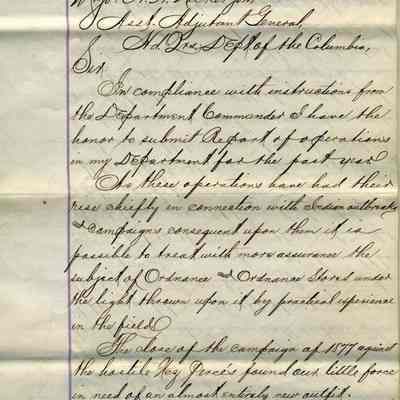 Asst. Adjutant General,
Hd. Qrs. Dept of the Columbia,
Sir
In compliance with instructions from
the Department Commander I have the
honor to submit Report of operations
in my Department for the past year
As these operations have had their
rise chiefly in connection with Indian outbreaks
& campaigns consequent upon them it is
possible to treat with more assurance the
subject of Ordnance & Ordnance Stores under
the light thrown upon it by practical experience
in the field
The close of the campaign of 1877 against
the hostile Nez Perces found our little force
in need of an almost entirely new outfit.